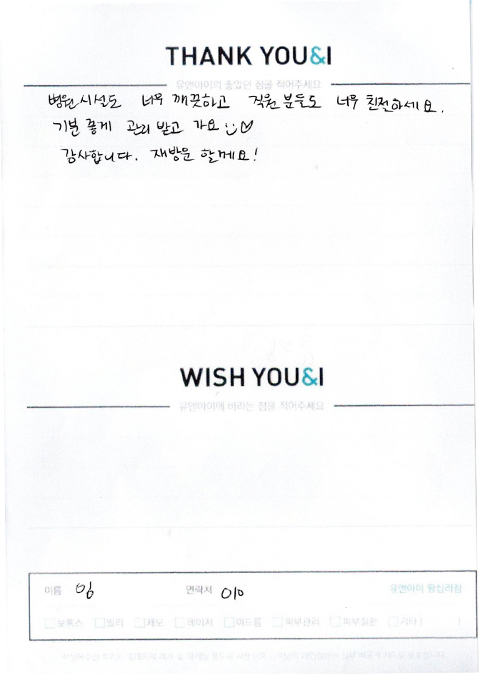 THANK YOU&I
유앤아이의 좋았던 점을 적어주세요
병원시설도 너무 깨끗하고 직원분들도 너무 친절하세요.
기분 좋게 관리 받고 가요
감사합니다. 재방문 할께요!
WISH YOU&I
유앤아이에 바라는 점을 적어주세요
이름 임 연락처 010 유앤아이 왕십리점
보톡스 필러 제모 레이저 여드름 피부관리 피부질환 기타 ( )